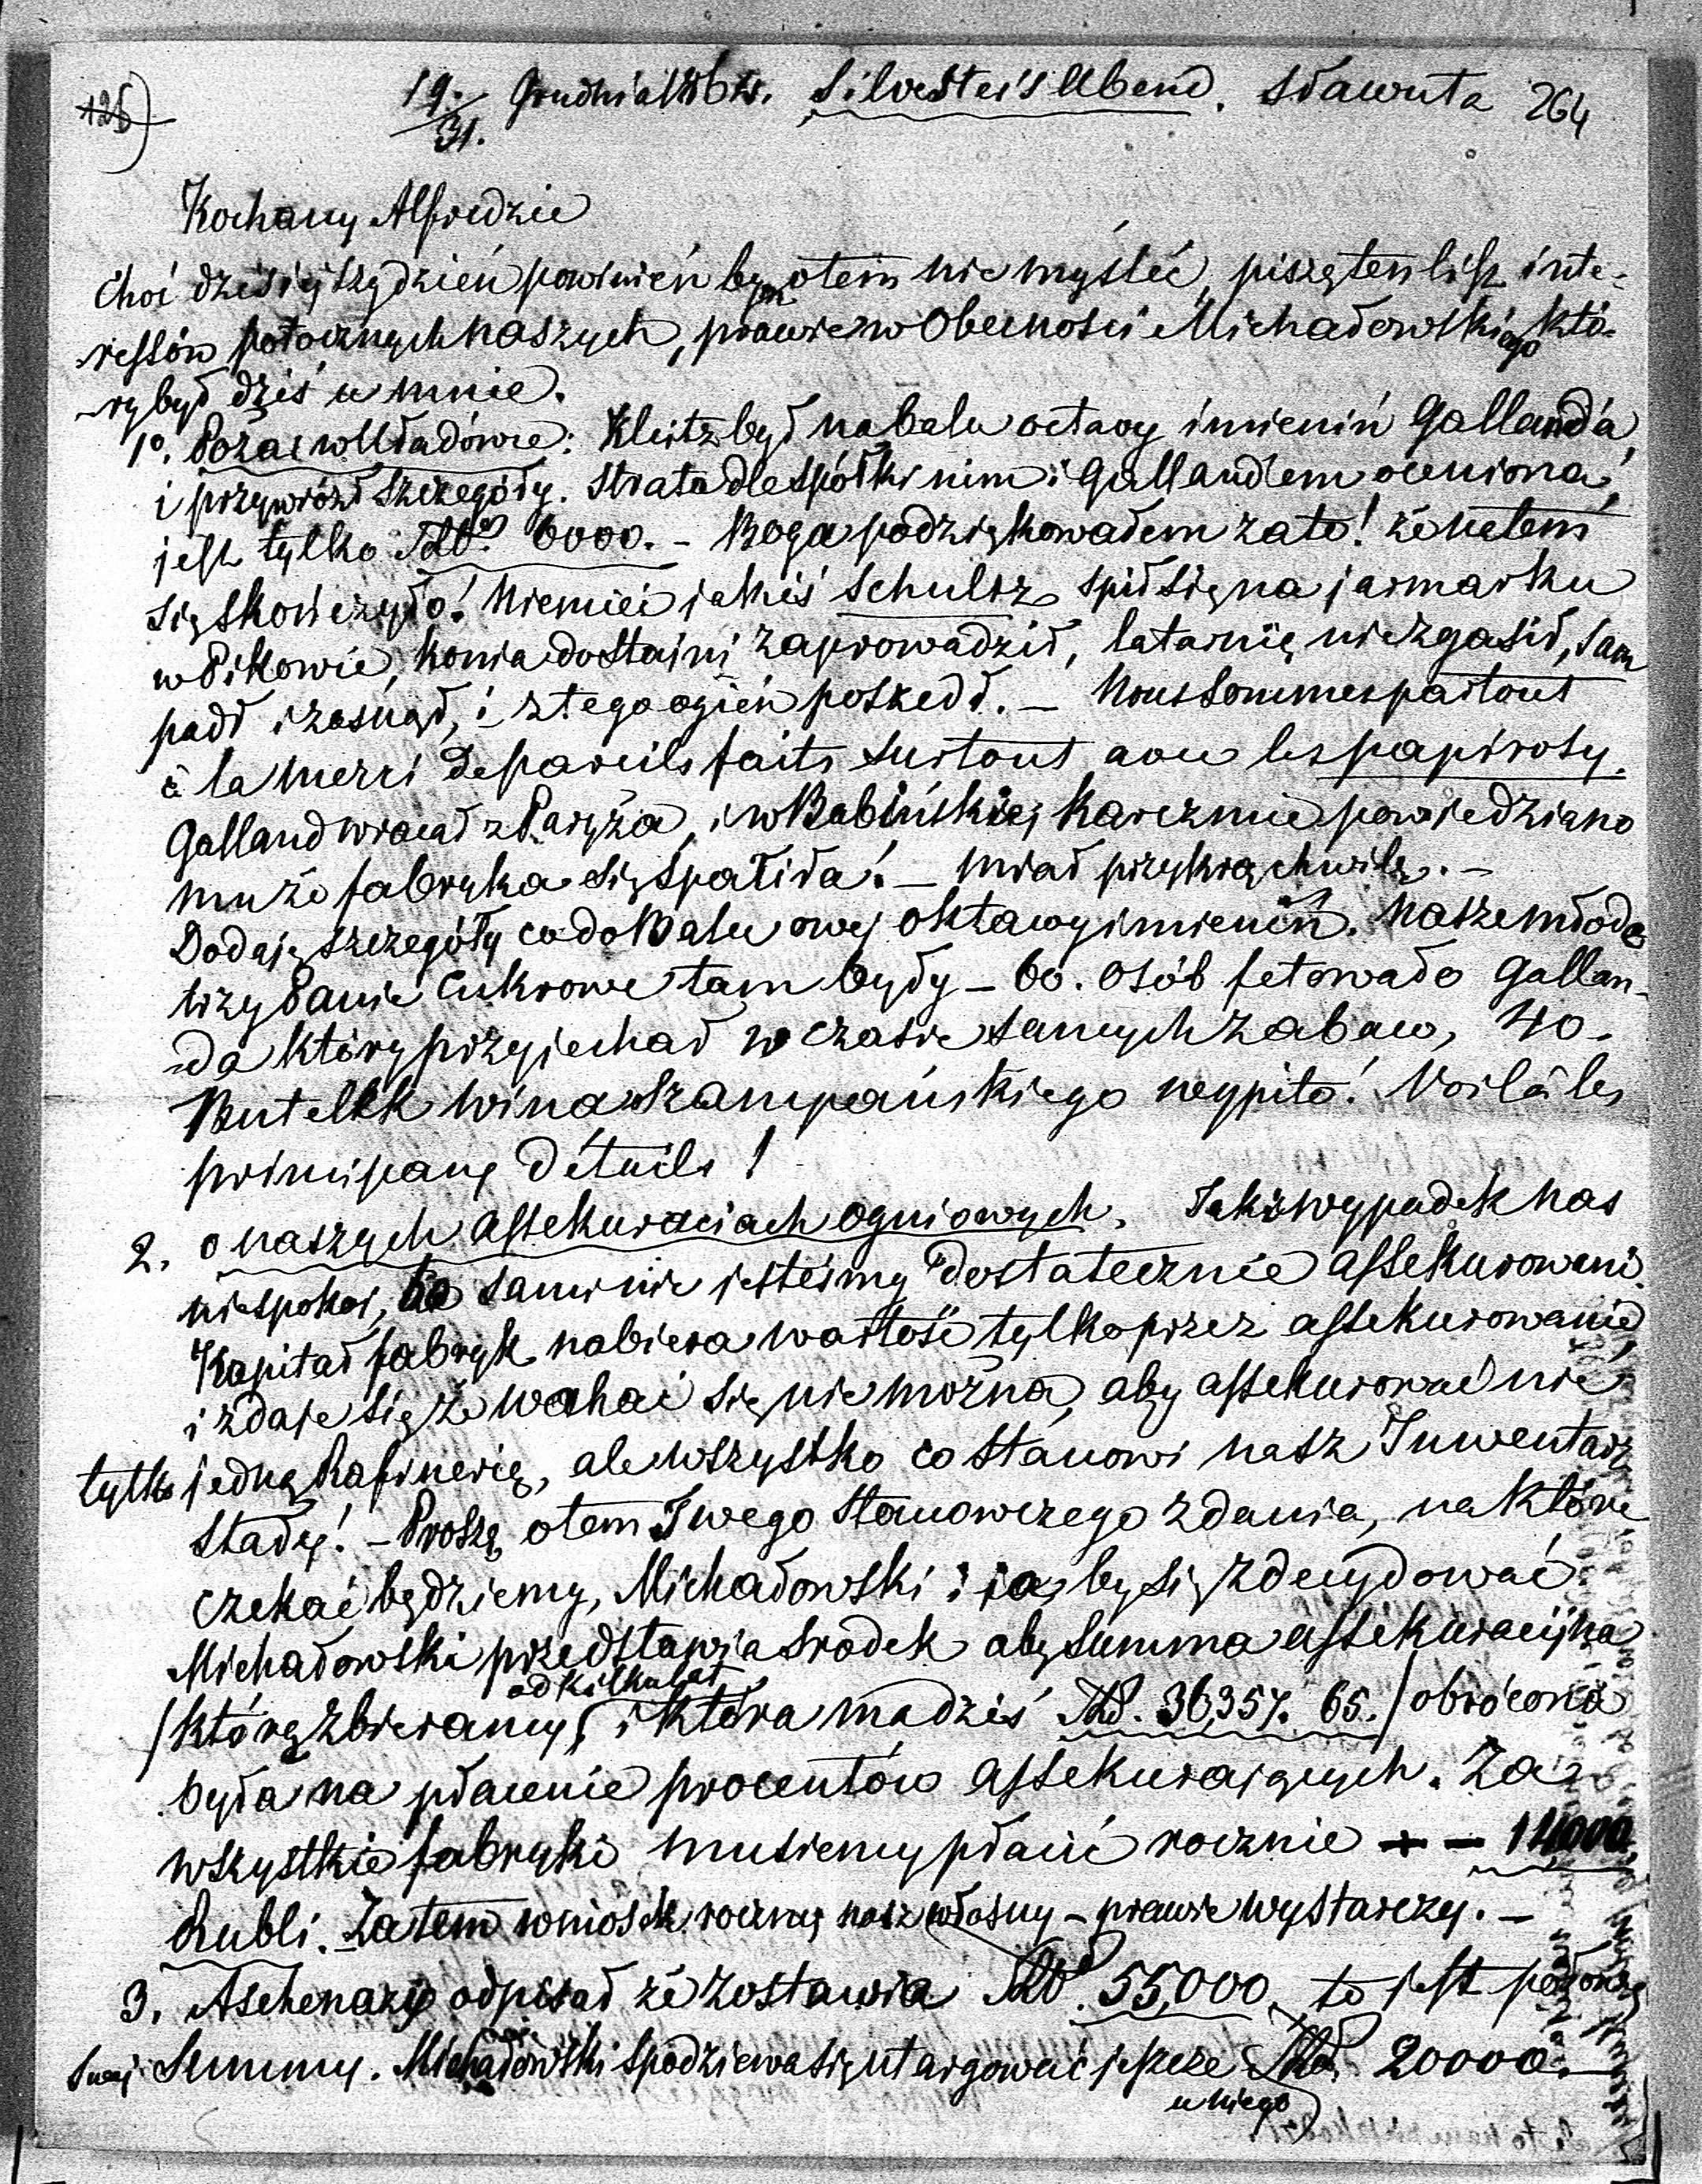 126) 19./31. Grudnia 186 r. Silvester's Abend. Sławuta 264
Kochany Alfredzie
Choć dzisiejszy dzień powinien bym o tem nie myśleć, piszę ten list inte-
ressów potocznych naszych, prawie w Obecności Michałowskiego któ-
ry był dziś u mnie.
1º. Pożar w Uładówce: Kleitz był na balu octavy imienin Gallanda
i przywiózł szczegóły. Strata dla spółki nim i Gallandem oceniona,
jest tylko Rb. 6000. – Boga podziękowałem za to! że na tem
się skończyło! Niemiec jakiś Schultz spił się na jarmarku
w Pikowie, konia do stajni zaprowadził, latarnię nie zgasił, sam
padł i zasnął, i z tego ogień poszedł. – Nous sommes partout
à la merci de pareils faits surtout avec les papirosy.
Galland wracał z Paryża, i w Babińskiej Karczmie powiedziano
mu że fabryka się spaliła! – Miał przykrą chwilę. –
Dodaję szczegóły co do Balu owej oktawy imienin. Nasze młode
trzy Panie Cukrowe tam były – 60. osób fetowało Gallan-
da który przyjechał w czasie samych zabaw, 40.
Butelek wina szampańskiego wypito! Voilà les
principaux détails!
2. o naszych assekuraciach ogniowych. Taki wypadek nas
niespokoi, bo sami nie jesteśmy dostatecznie assekurowani.
Kapitał fabryk nabiera wartości tylko przez assekurowanie
i zdaje się że wahać się nie można, aby assekurować nie
tylko jedną Rafinerię, ale wszystko co stanowi nasz Inwentarz
stały! – Proszę o tem Twego stanowczego zdania, na które
czekać będziemy, Michałowski i ja, by się zdecydować.
Michałowski przedstawia środek aby summa assekuracijna
/którą zbieramy od kilku lat i która ma dziś Rb. 36,357. 65./ obrócona
była na płacenie procentów assekurających. Za
wszystkie fabryki musiemy płacić rocznie – – 14000
Rubli. Zatem wniosek roczny nasz własny – prawie wystarczy. –
3. Aschenazy odpisał że zostawia Rb. 55,000. to jest połowę
swej Summy. Michałowski spodziewa się utargować jeszcze Rb. 20000. –
u niego